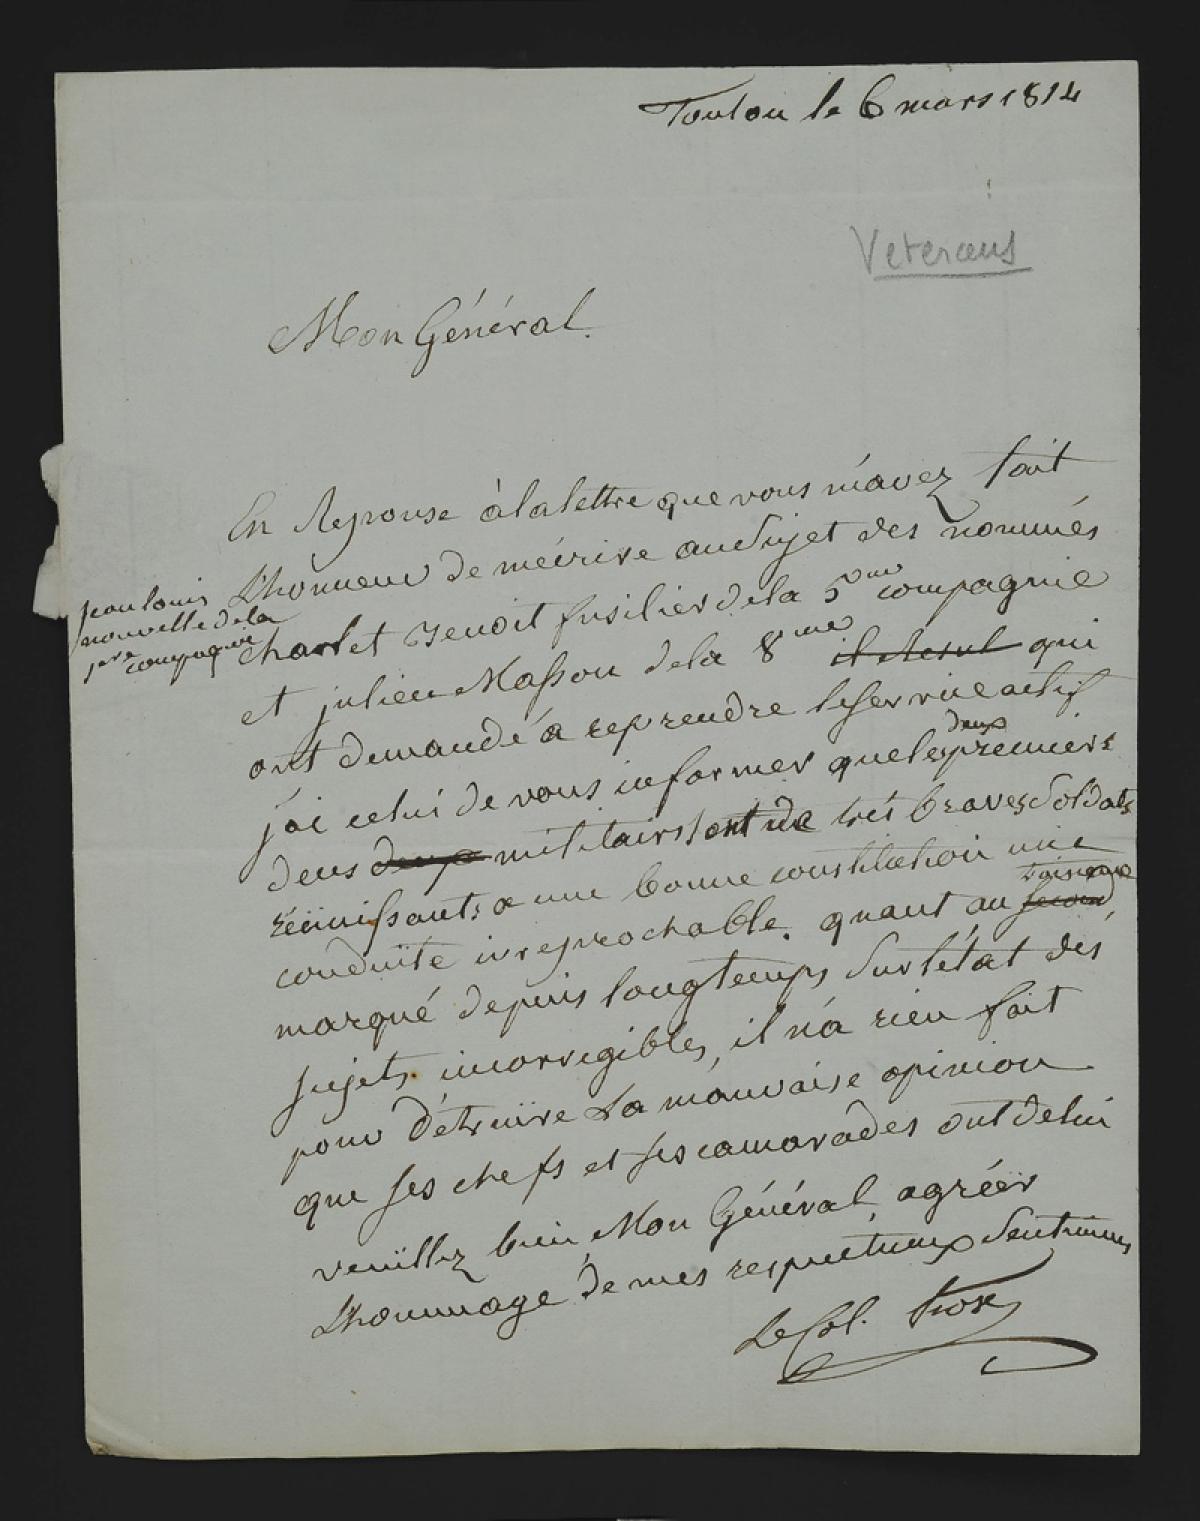 Toulon le 6 mars 1814
Veterans
Mon Général.
En Reponse à la lettre que vous m'avez fait
L'honneur de mécrire au Sujet des nommés
jean louis
nouvelle de la
1ere compagnie
charlet Benoit fusilier de la 5eme compagnie
et julien Masson de la 8eme il desul qui
ont demandé a reprendre le service actif
j'ai celui de vous informer que les deux premiers
deus deux militairs sont de trés braves Soldats
réünissants a une bonne constitution une
conduite irreprochable. quant au second troisieme
marqué depuis longtemps Sur l'état des
sujets incorrigibles, il n'a rien fait
pour détruire La mauvaise opinion
que ses chefs et ses camarades ont de lui
veuïllez bien, Mon Général, agréér
L'hommage de mes respectueux Sentimens
Le Col.